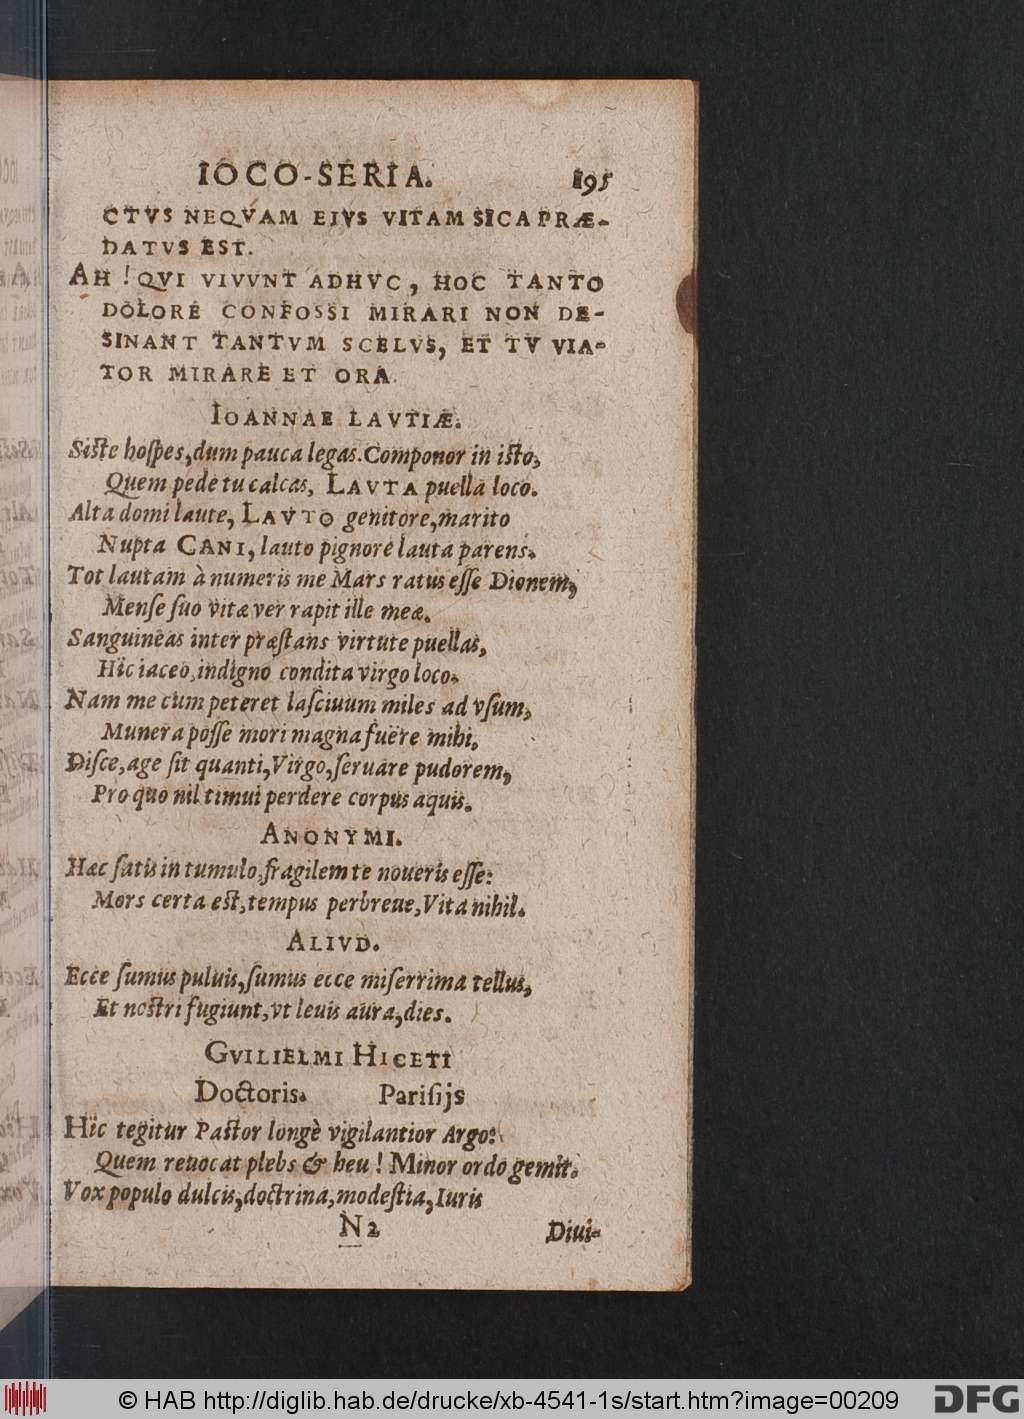 IOCO-SERIA. 195
CTVS NEQVAM EJVS VITAM SICA PRÆ-
DATVS EST.
AH! QVI VIVVNT ADHVC, HOC TANTO
DOLORE CONFOSSI MIRARI NON DE-
SINANT TANTVM SCELVS, ET TV VIA-
TOR MIRARE ET ORA.
IOANNAE LAVTIÆ.
Siste hospes, dum pauca legas. Componor in isto,
Quem pede tu calcas, LAVTA puella loco.
Alta domi laute, LAVTO genitore, marito
Nupta CANI, lauto pignore lauta parens.
Tot lautam à numeris me Mars ratus esse Dionem,
Mense suo vitæ ver rapit ille meæ.
Sanguineas inter præstans virtute puellas,
Hic iaceo, indigno condita virgo loco.
Nam me cum peteret lasciuum miles ad vsum,
Munera posse mori magna fuêre mihi,
Disce, age sit quanti, Virgo, seruare pudorem,
Pro quo nil timui perdere corpus aquis.
ANONYMI.
Hæc satis in tumulo, fragilem te noueris esse:
Mors certa est, tempus perbreue, Vita nihil.
ALIVD.
Ecce sumus puluis, sumus ecce miserrima tellus,
Et nostri fugiunt, vt leuis aura, dies.
GVILIELMI HICETI
Doctoris. Parisijs
Hic tegitur Pastor longè vigilantior Argo:
Quem reuocat plebs & heu! Minor ordo gemit.
Vox populo dulcis, doctrina, modestia, Iuris
N 2 Diui-
© HAB http://diglib.hab.de/drucke/xb-4541-1s/start.htm?image=00209 DFG